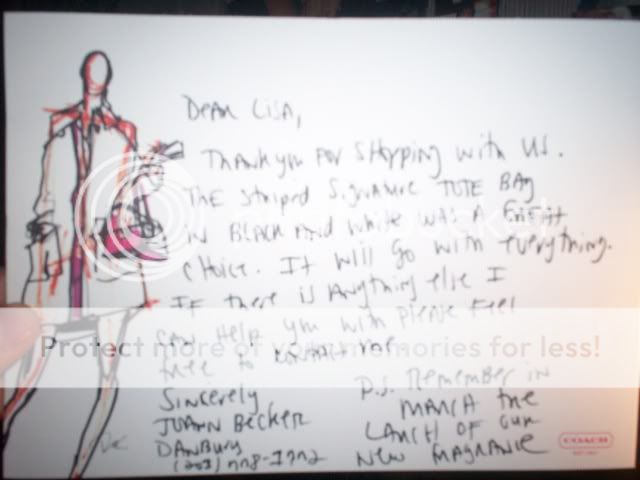 Dear Lisa,
Thank you for shopping with us.
The striped signature TOTE BAG
in Black and white was a great
choice. It will go with everything.
If there is anything else I
can help you with please feel
free to contact me.
Sincerely
JoAnn Becker
Danbury
P.S. Remember in
March the
Lanch of our
New Fragrance
COACH
photobucket
Protect more of your memories for less!